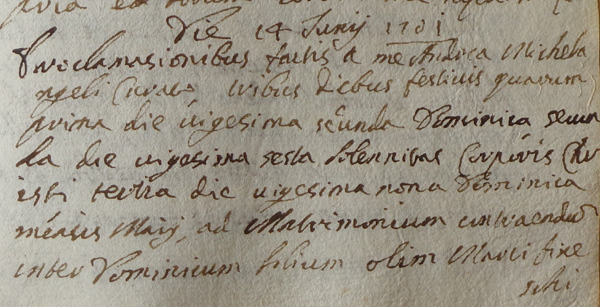 Die 14 Junij 1701
Proclamasionibus factis a me Andrea Michela
ngeli Curato tribus diebus festivis quarum
prima die uigesima secunda Dominica secun
da die uigesima sesta solennitas Corporis Chr
isti tertia die uigesima nona Dominica
mensis Maij, ad Matrimonium contraendum
inter Dominicum filium olim Marci fine
schi